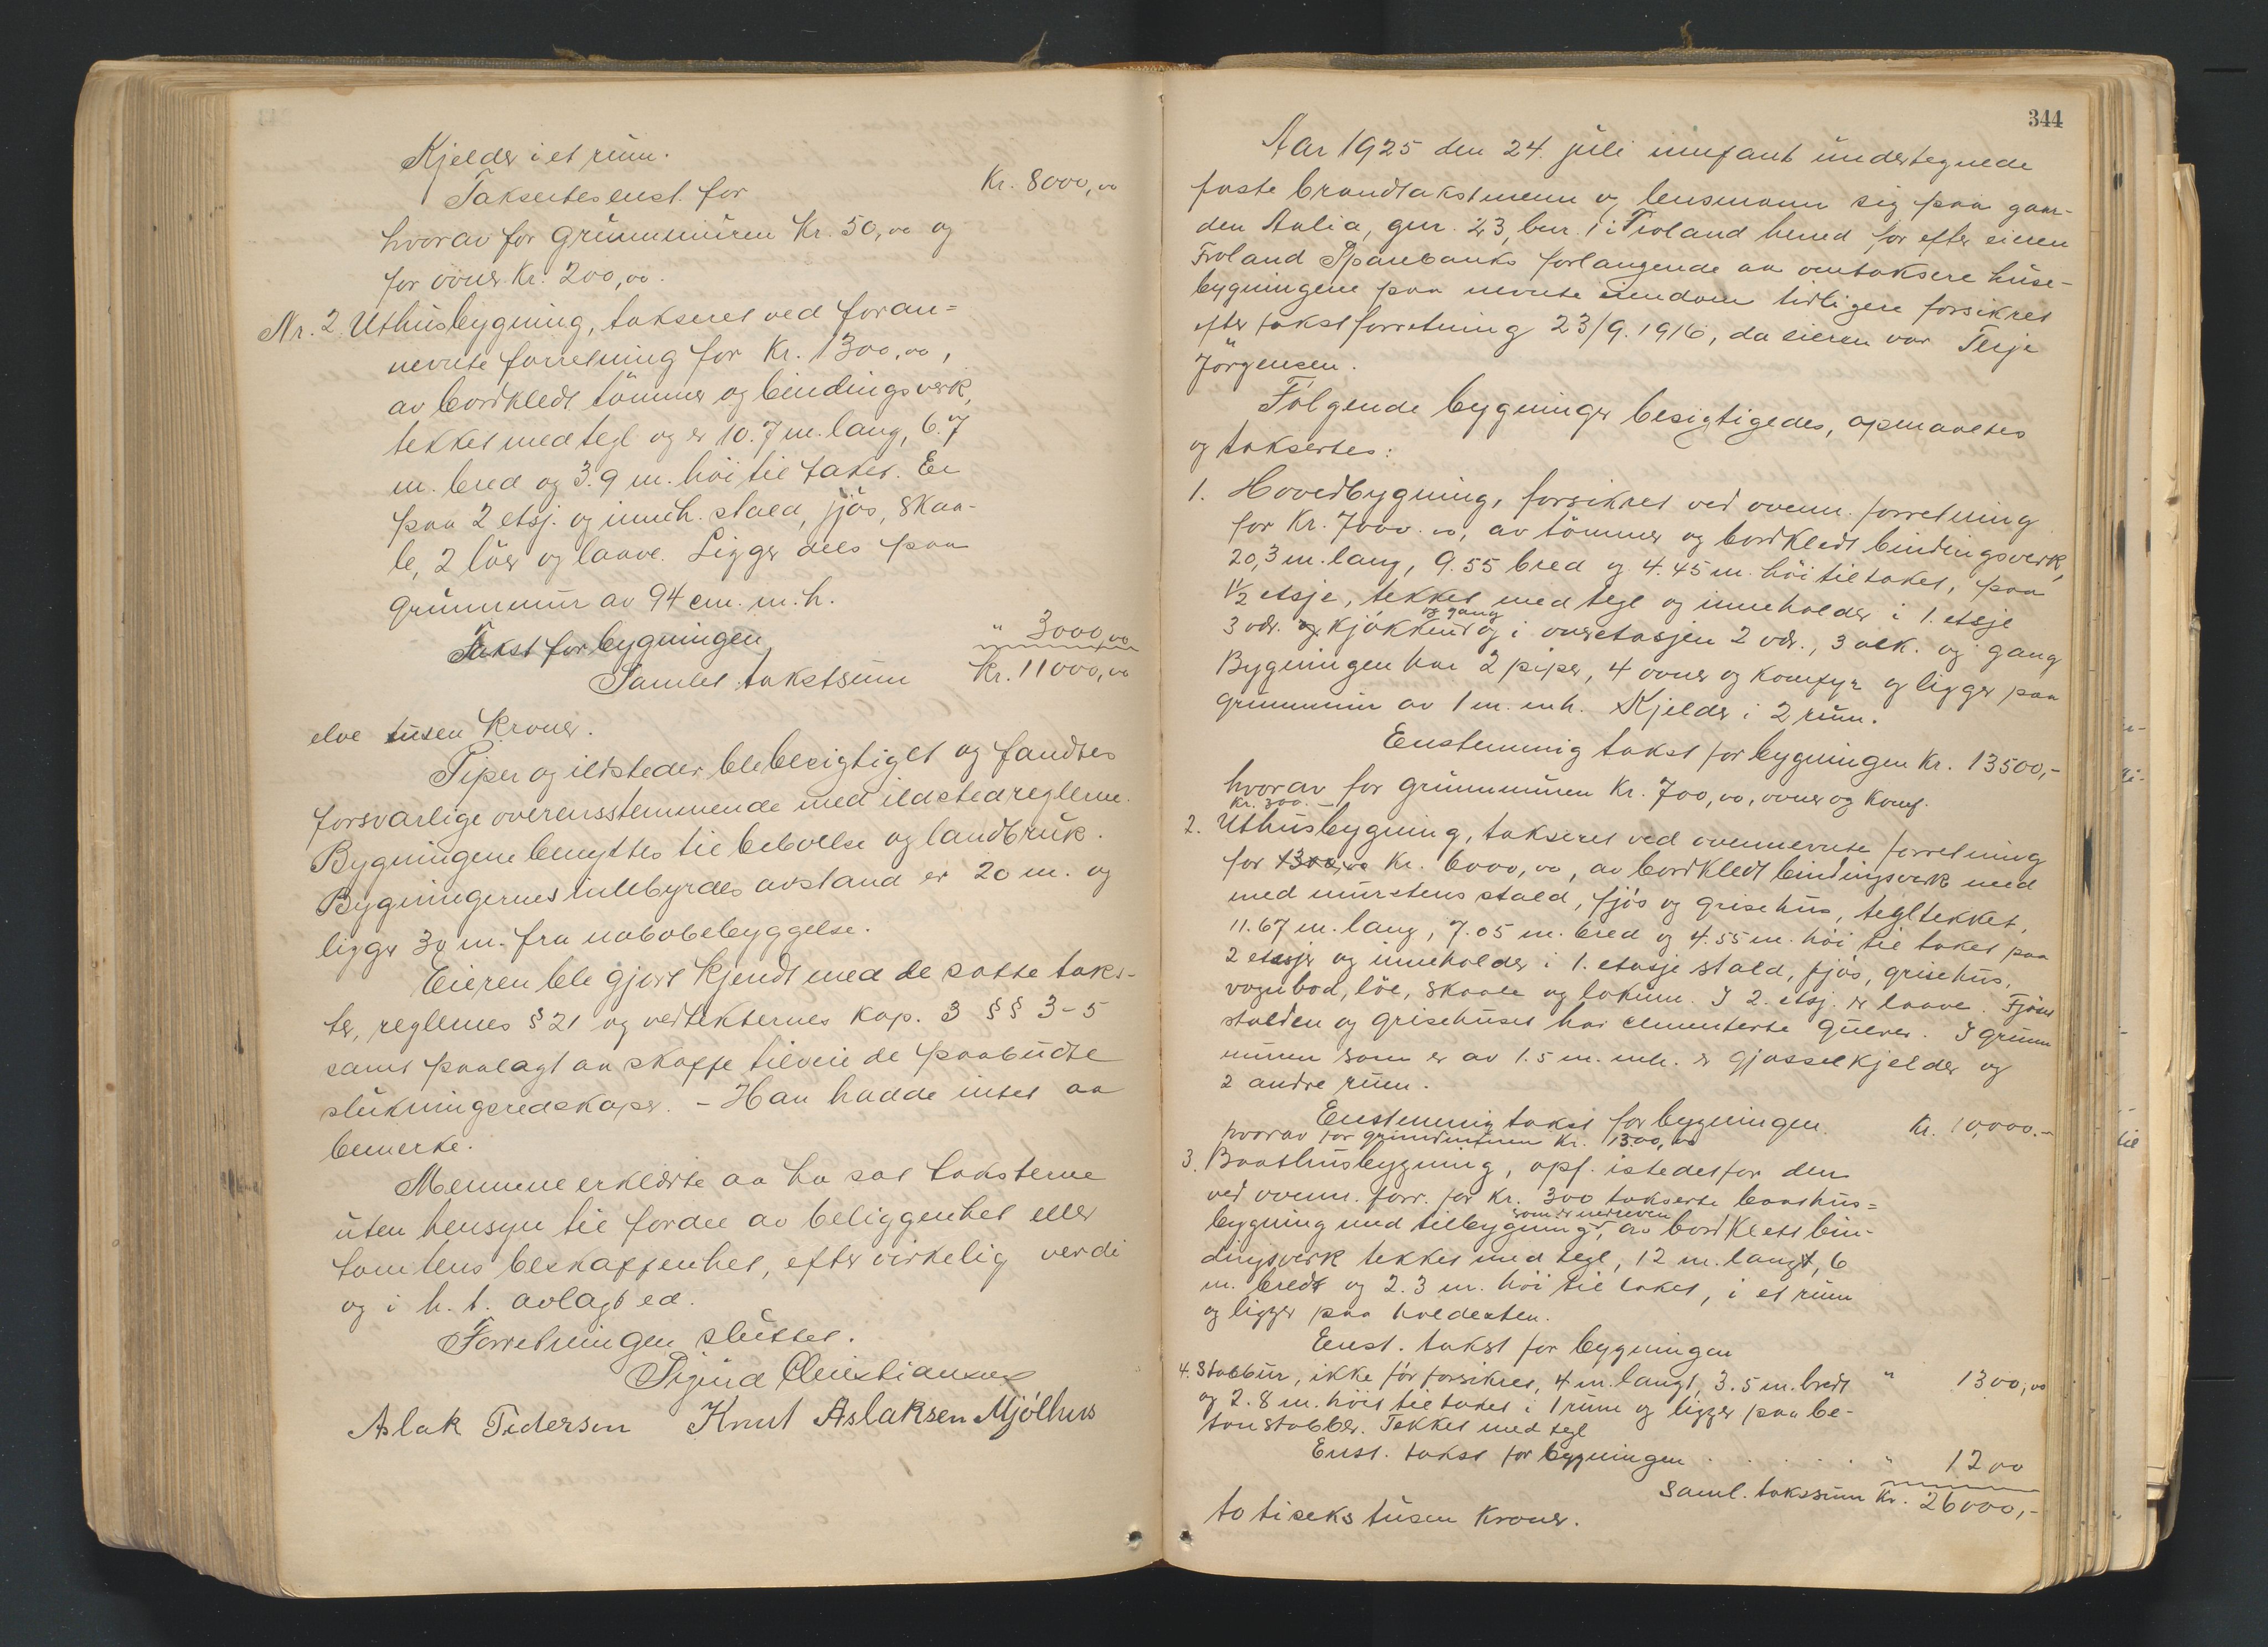 Kjelder i et rum.
Taksertes enst. for Kr. 8000,00
hvorav for grunnmuren Kr. 50,00 og
for ovner Kr. 200,00.
Nr. 2. Uthusbygning, taksert ved foran=
nevnte forretning for Kr. 1300,00,
av bordklædt tömmer og bindingsverk,
tekket med tegl og er 10.7 m. lang, 6.7
m. bred og 3.9 m. höi til taket. Er
paa 2 etsj. og inneh. stald, fjös, skaa-
le, 2 löer og laave. Ligger dels paa
grunnmur av 94 cm. m.h.
Takst for bygningen " 3000,00
Samlet takstsum Kr. 11000,00
elve tusen Kroner.
Piper og ildsteder ble besigtiget og fandtes
forsvarlige overensstemmende med ildstedreglerne.
Bygningene benyttes til beboelse og landbruk.
Bygningernes inbebyrdes avstand er 20 m. og
ligger 30 m. fra nabobebyggelse.
Eieren ble gjort kjendt med de satte taks-
ter, reglernes § 21 og vedtekternes kap. 3 §§ 3-5
samt paalagt aa skaffe tilveie de paabudte
slukningsredskaper. - Han hadde intet aa
bemerke.
Mennene erklærte aa ha sat taksterne
uten hensyn til fordel av beliggenhet eller
tomtens beskaffenhet, efter virkelig verdi
og i h. t. avlagt ed.
Forretningen sluttet.
Sigurd Christiansen
Aslak Pedersen Knut Aslaksen Mjölhus
344
Aar 1925 den 24. juli innfant undertegnede
faste brandtakstmenn og lensmann sig paa gaar-
den Aalia, gnr. 23, bnr. 1 i Froland herred for efter eieren
Froland Sparebanks forlangende aa omtaksere huse-
bygningene paa nevnte eiendom tidligere forsikret
efter takstforretning 23/9. 1916, da eieren var Terje
Jörgensen.
Fölgende bygninger besigtigedes, opmaaltes
og taksertes:
1. Hovedbygning, forsikret ved ovenn. forretning
for Kr. 7000.00, av tömmer og bordklædt bindingsverk,
20,3 m. lang, 9.55 bred og 4.45 m. höi til taket, paa
1 1/2 etsje, tekket med tegl og inneholder i 1. etsje
og gang
3 vær. og kjökken og i overetasjen 2 vær., 3 alk. og gang
Bygningen har 2 piper, 4 ovner og komfyr og ligger paa
grunnmur av 1 m. mh. Kjelder i 2 rum.
Enstemmig takst for bygningen Kr. 13500,-
hvorav for grunnmuren Kr. 700,00, ovner og komf.
Kr. 300.-
2. Uthusbygning, taksert ved ovennevnte forretning
for 1300,00 Kr. 6000,00, av bordklædt bindingsverk med
med murstens stald, fjös og grisehus, tegltekket,
11.67 m. lang, 7.05 m. bred og 4.55 m. höi til taket paa
2 etasjer og inneholder i 1. etasje stald, fjös, grisehus,
vognbod, löe, skaale og lokum. I 2. etsj. er laave. Fjöset
stalden og grisehuset har cementerte gulver. I grunn
muren som er av 1.5 m. mh. er gjødselkjelder og
2 andre rum.
Enstemmig takst for bygningen. Kr. 10,000.-
hvorav for grundmuren Kr. 1300,00
3. Baathusbygning, opf. istedetfor den
ved ovenn. forr. for Kr. 300 takserte baathus=
som er nedreven
bygning med tilbygning, av bordklædt bin-
dingsverk tekket med tegl, 12 m. langt, 6
m. bredt og 2.3 m. höi til taket, i et rum
og ligger paa holdesten.
Enst. takst for bygningen " 1300,00
4. Stabbur, ikke för forsikret, 4 m. langt, 3.5 m. bredt
og 2.8 m. höit til taket i 1 rum og ligger paa be-
tonstabber. Tekket med tegl
Enst. takst for bygningen . . . . . " 1200
Saml. takssum Kr. 26000,-
to ti seks tusen Kroner.